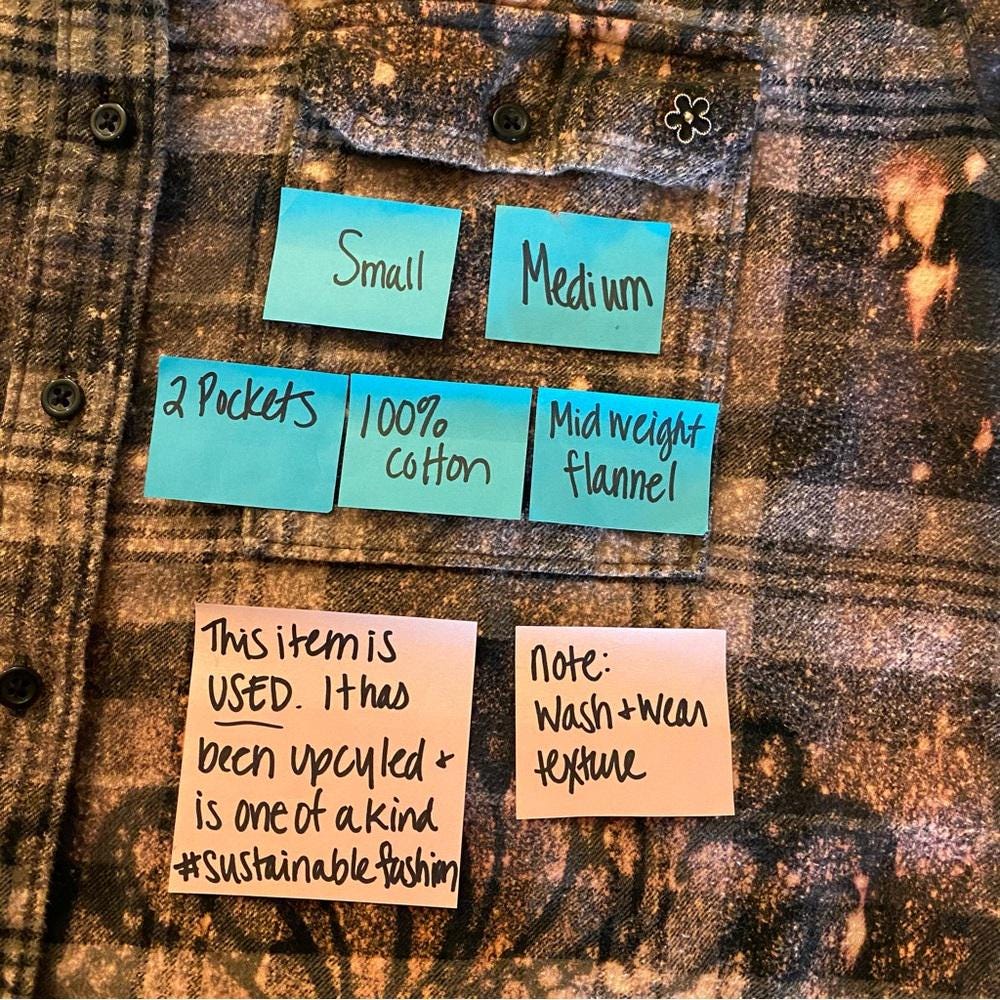 Small
Medium
2 Pockets
100%
cotton
Mid weight
flannel
This item is
USED. It has
been upcyled +
is one of a kind
#sustainable fashion
note:
Wash + Wear
texture